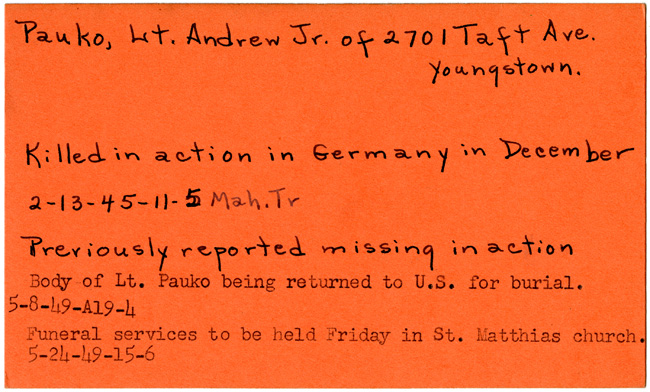 Pauko, Lt. Andrew Jr. of 2701 Taft Ave.
Youngstown.
Killed in action in Germany in December
2-13-45-11-5 Mah. Tr
Previously reported missing in action
Body of Lt. Pauko being returned to U.S. for burial.
5-8-49-A19-4
Funeral services to be held Friday in St. Matthias church.
5-24-49-15-6